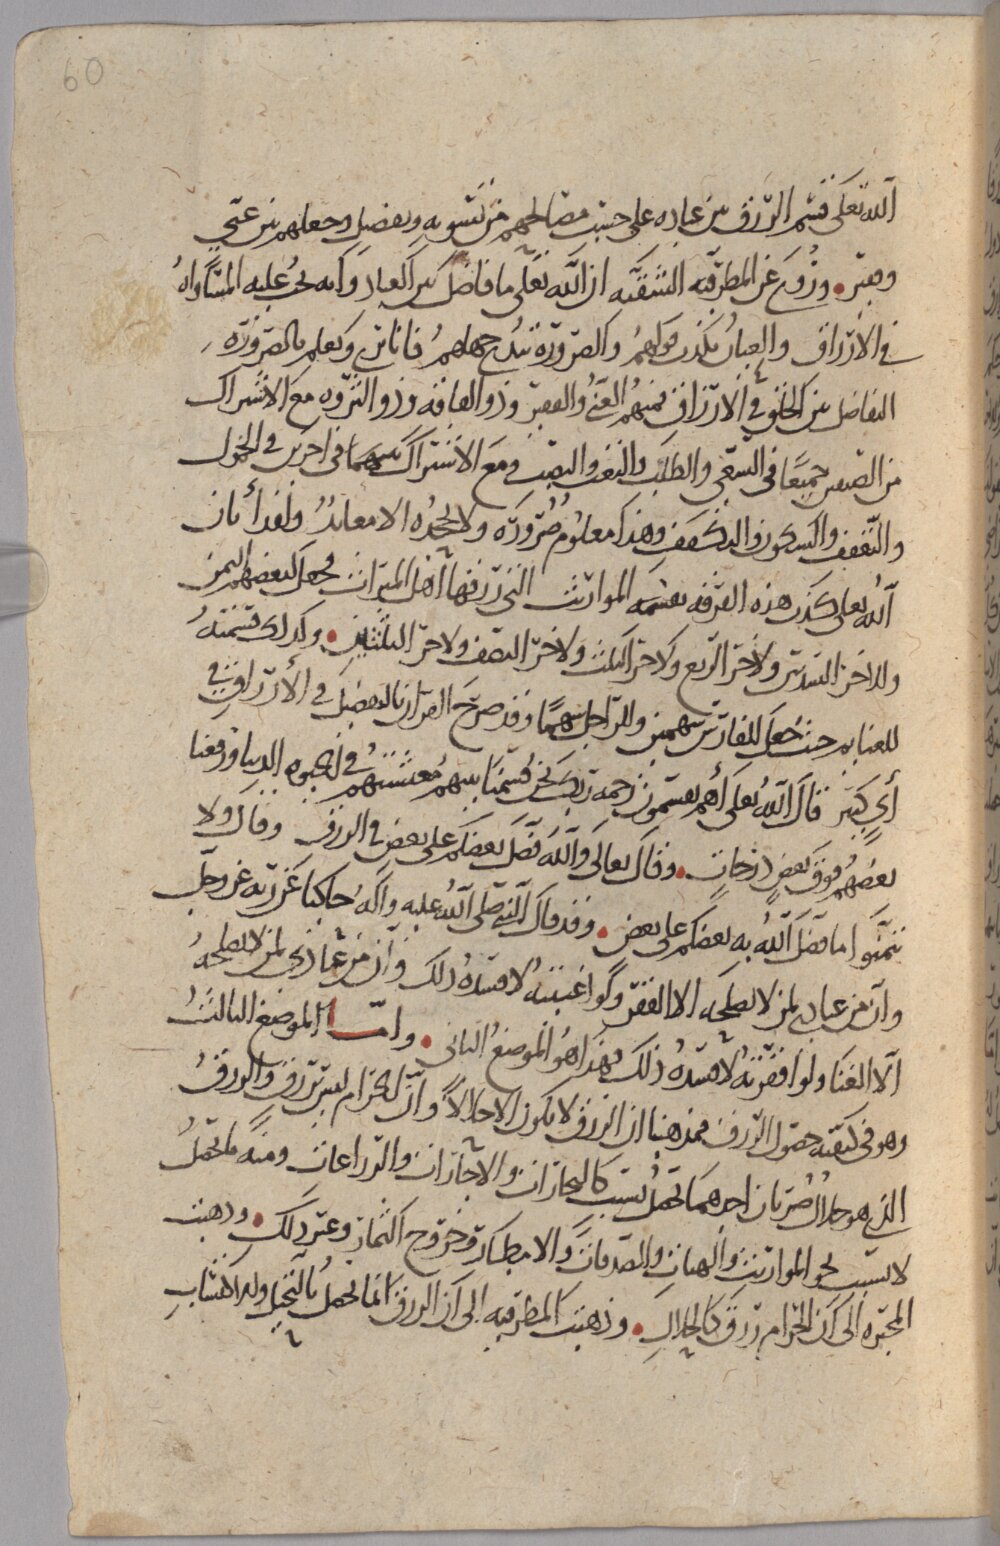 60
الله تعلى قسم الرزق بين عباده على حسب مصالحهم من تسويه وتفضيل وجعلهم بين غني
وفقير • وروي عن المطرفيه الشقيه ان الله تعلى ما فاضل بين العباد وانه يجب عليه المساواه
في الارزاق والعيان يكذب قولهم والضرورة تبدع جهلهم فانا نرى ونعلم بالضرورة
التفاضل بين الخلق في الارزاق فمنهم الغني والفقير وذو الفاقه وذو الثروه مع الاشتراك
من الصنفين جميعا في السعي والطلب والتعب والنصب ومع الاشتراك بينهما في اخرين في الخمول
والتعفف والسكون والتكفف وهذا معلوم ضرورة ولا يجحده الا معاند ولقد أبان
الله تعلى كذب هذه الفرقه بقسمه المواريث التي رزقها اهل الميراث فجعل لبعضهم الثمن
ولاخر السدس ولاخر الربع ولاخر الثلث ولاخر النصف ولاخر الثلثين • وكذلك قسمته
للغنايم حيث جعل للفارس سهمين وللراجل سهما وقد صرح القران بالتفضيل في الأرزاق في
أي كثير قال الله تعلى أهم يقسمون رحمة ربك نحن قسمنا بينهم معيشتهم في الحيوه الدنيا ورفعنا
بعضهم فوق بعض درجات • وقال تعالى والله فضل بعضكم على بعض في الرزق وقال ولا
تتمنوا ما فضل الله به بعضكم على بعض • وقد قال النبي صلى الله عليه وآله حاكيا عن ربه عز وجل
وان من عبادي لمن لا يصلحه الا الفقر ولو اغنيته لافسده ذلك وان من عبادي لمن لا يصلحه
الا الغنا ولو افقرته لافسده ذلك فهذا هو الموضع الثاني • واما الموضع الثالث
وهو في كيفيه حصول الرزق فمذهبنا ان الرزق لا يكون الا حلالا وان الحرام ليس برزق والرزق
الذي هو حلال ضربان احدهما يحصل بسبب كالتجارات والاجارات والزراعات ومنه ما يحصل
لا بسبب نحو المواريث والهبات والصدقات والامطار وخروج الثمار وغير ذلك • وذهبت
المجبره الى ان الحرام رزق كالحلال • وذهبت المطرفيه الى ان الرزق انما يحصل بالتحيل والاكتساب